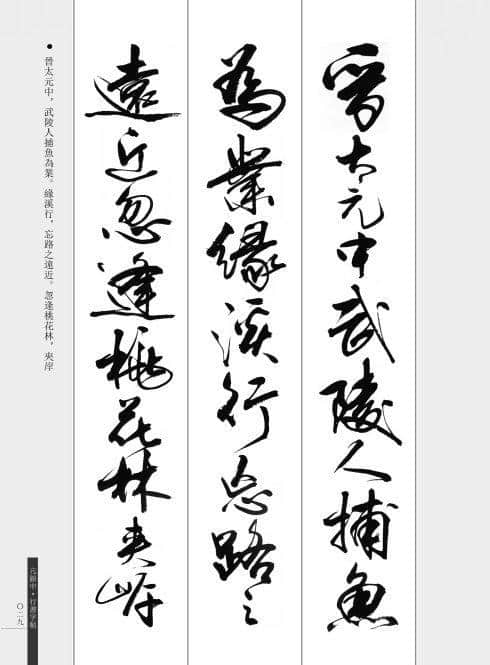 晉太元中武陵人捕魚
為業緣溪行忘路之
遠近忽逢桃花林夾岸
●晉太元中，武陵人捕魚為業。緣溪行，忘路之遠近。忽逢桃花林，夾岸
行書字帖
〇二九